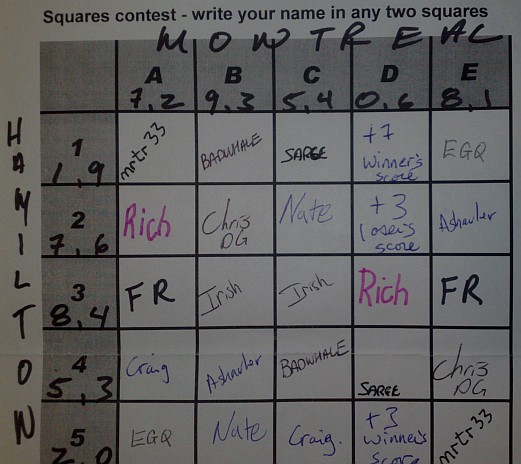 Squares contest - write your name in any two squares
MONTREAL
A B C D E
7,2 9,3 5,4 0,6 8,1
HAMILTON
1
1,9
mrtr33
BADWHALE
SARGE
+7
winner's
score
EGQ
2
7,6
Rich
Chris
DG
Nate
+3
loser's
score
Ashauler
3
8,4
FR
Irish
Irish
Rich
FR
4
5,3
Craig
Ashauler
BADWHALE
SARGE
Chris
DG
5
2,0
EGQ
Nate
Craig.
+3
winner's
score
mrtr33